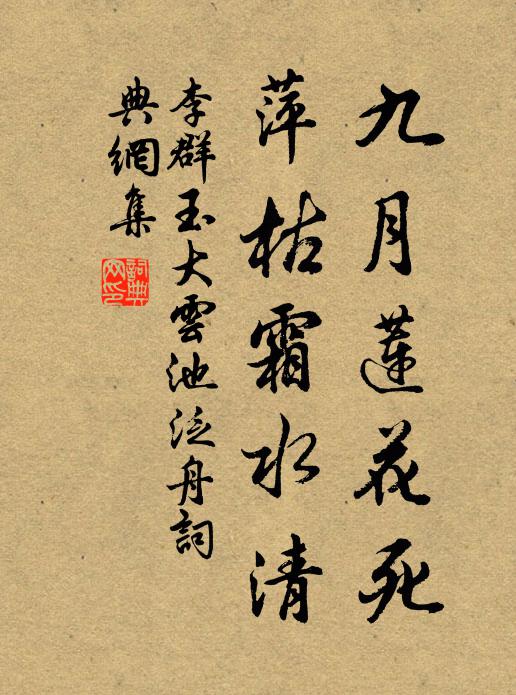 九月蓮花死
萍枯霜水清
李群玉大雲池泛舟詞
典網集
詞典網印